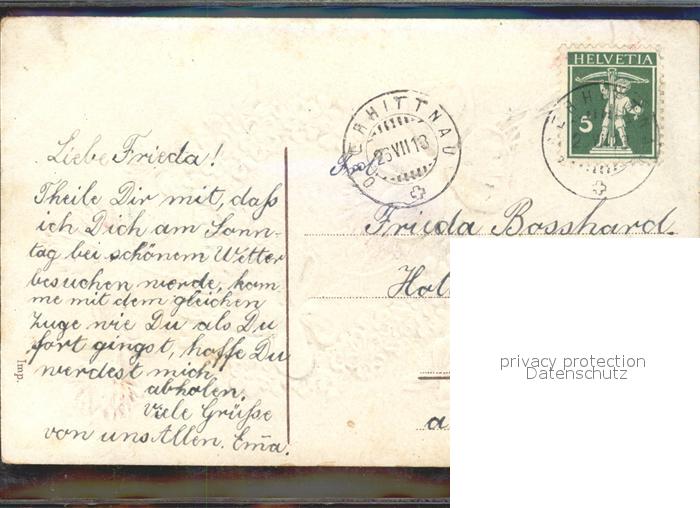 HELVETIA
5
OBERHITTNAU
26 VII 13
Liebe Frieda!
Theile Dir mit, daß
ich Dich am Sonn-
tag bei schönem Wetter
besuchen werde, kom
me mit dem gleichen
Zuge wie Du als Du
fort gingst, hoffe Du
werdest mich
abholen.
Viele Grüße
von uns Allen. Em̄a.
Imp.
Frieda Bosshard
a
privacy protection
Datenschutz